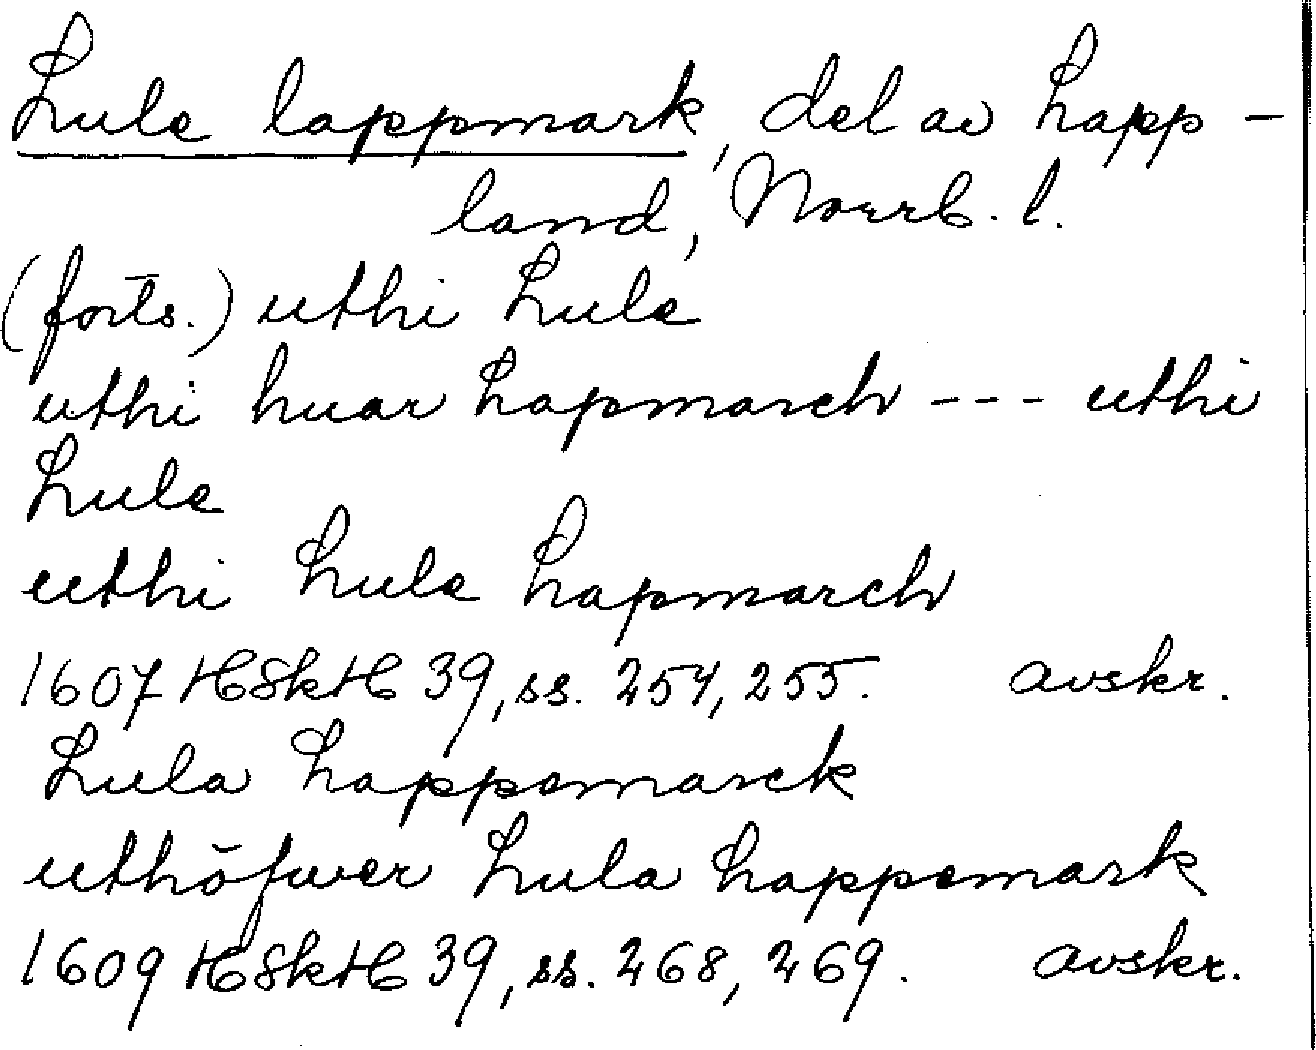 Lule lappmark, del av Lapp-
land, Norrb. l.
(forts.) uthi Lule
uthi huar Lapmarch --- uthi
Lule
uthi Lule Lapmarch
1607 HSkH 39, ss. 254, 255. avskr.
Lula Lappemarck
uthöfwer Lula Lappemark
1609 HSkH 39, ss. 268, 269. avskr.